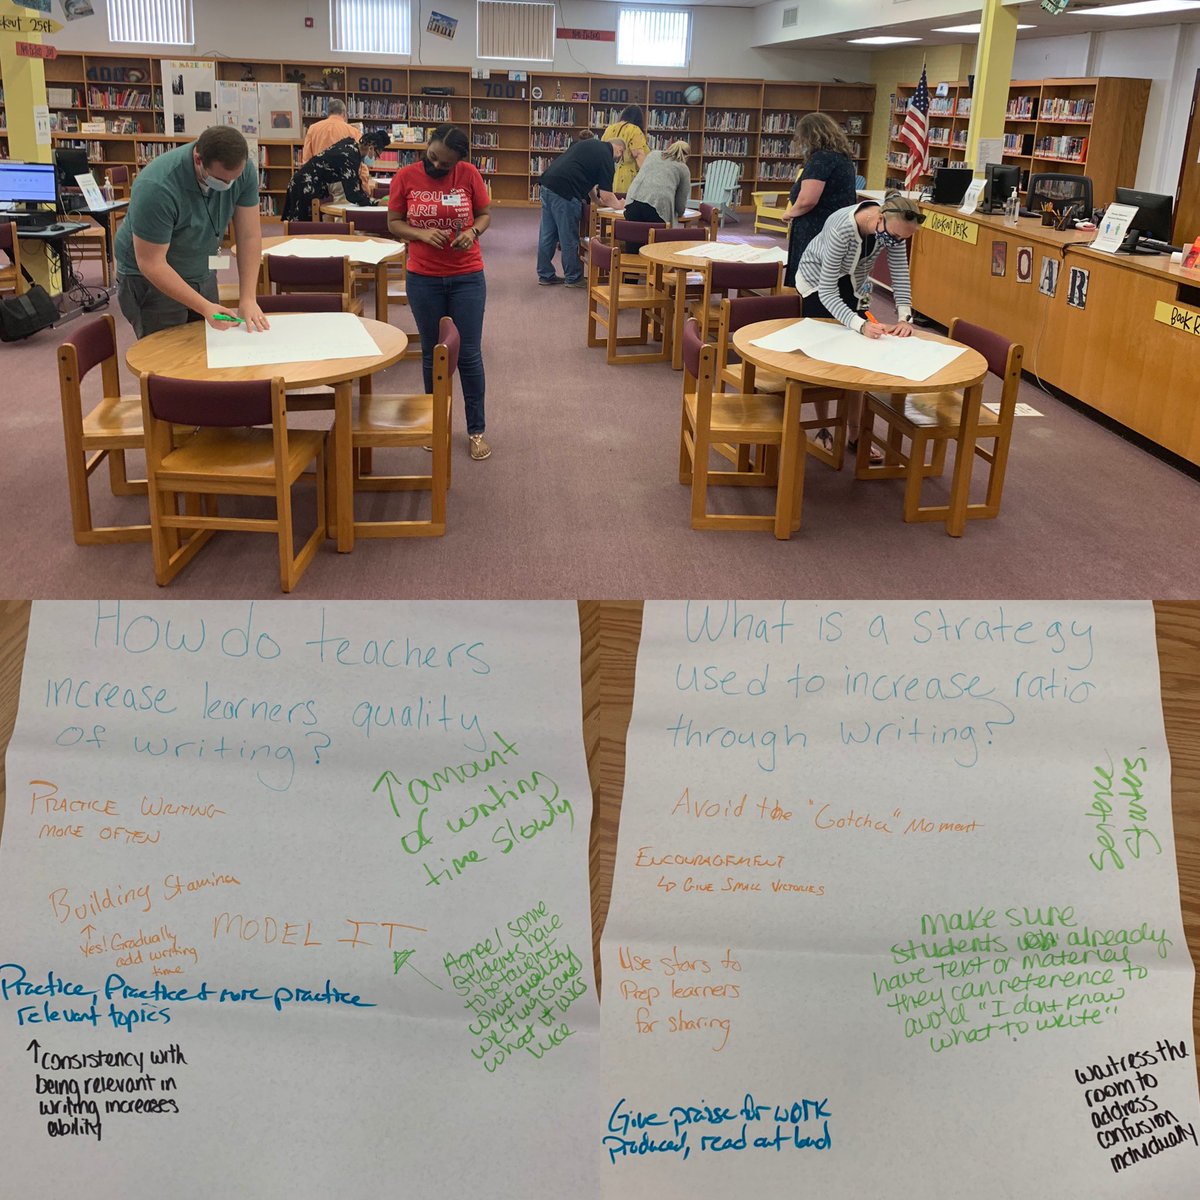 Checkout 25ft
400
600
700
800
900
YOU
ARE
ENOUGH
Checkout Desk
SOAR
How do teachers
increase learners quality
of writing?
↑ amount
of writing
time slowly
PRACTICE WRITING
MORE OFTEN
Building Stamina
↑
Yes! Gradually
add writing
time
MODEL IT
Agree! some
students have
to be taught
what quality
writing is and
what it looks
like
Practice, Practice & more practice
relevant topics
↑ consistency with
being relevant in
writing increases
ability
What is a strategy
used to increase ratio
through writing?
Sentence
Starters
Avoid the "Gotcha" Moment
ENCOURAGEMENT
↳ GIVE SMALL VICTORIES
make sure
students already
have text or material
they can reference to
avoid "I dont know
what to write"
Use stars to
Prep learners
for sharing
Give praise for work
produced, read out loud
waitress the
room to
address
confusion
individually